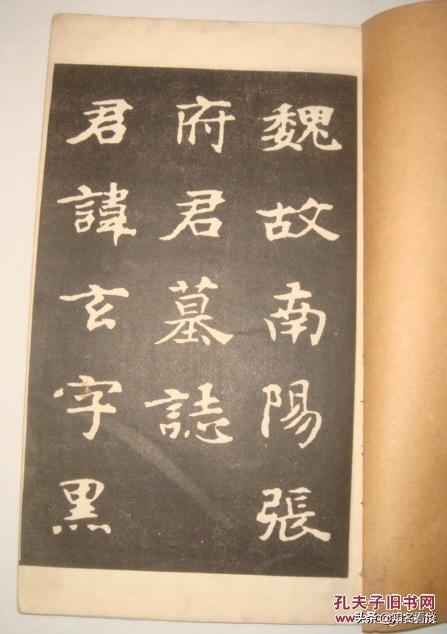 魏故南陽張
府君墓誌
君諱玄字黑
孔夫子旧书网
头条